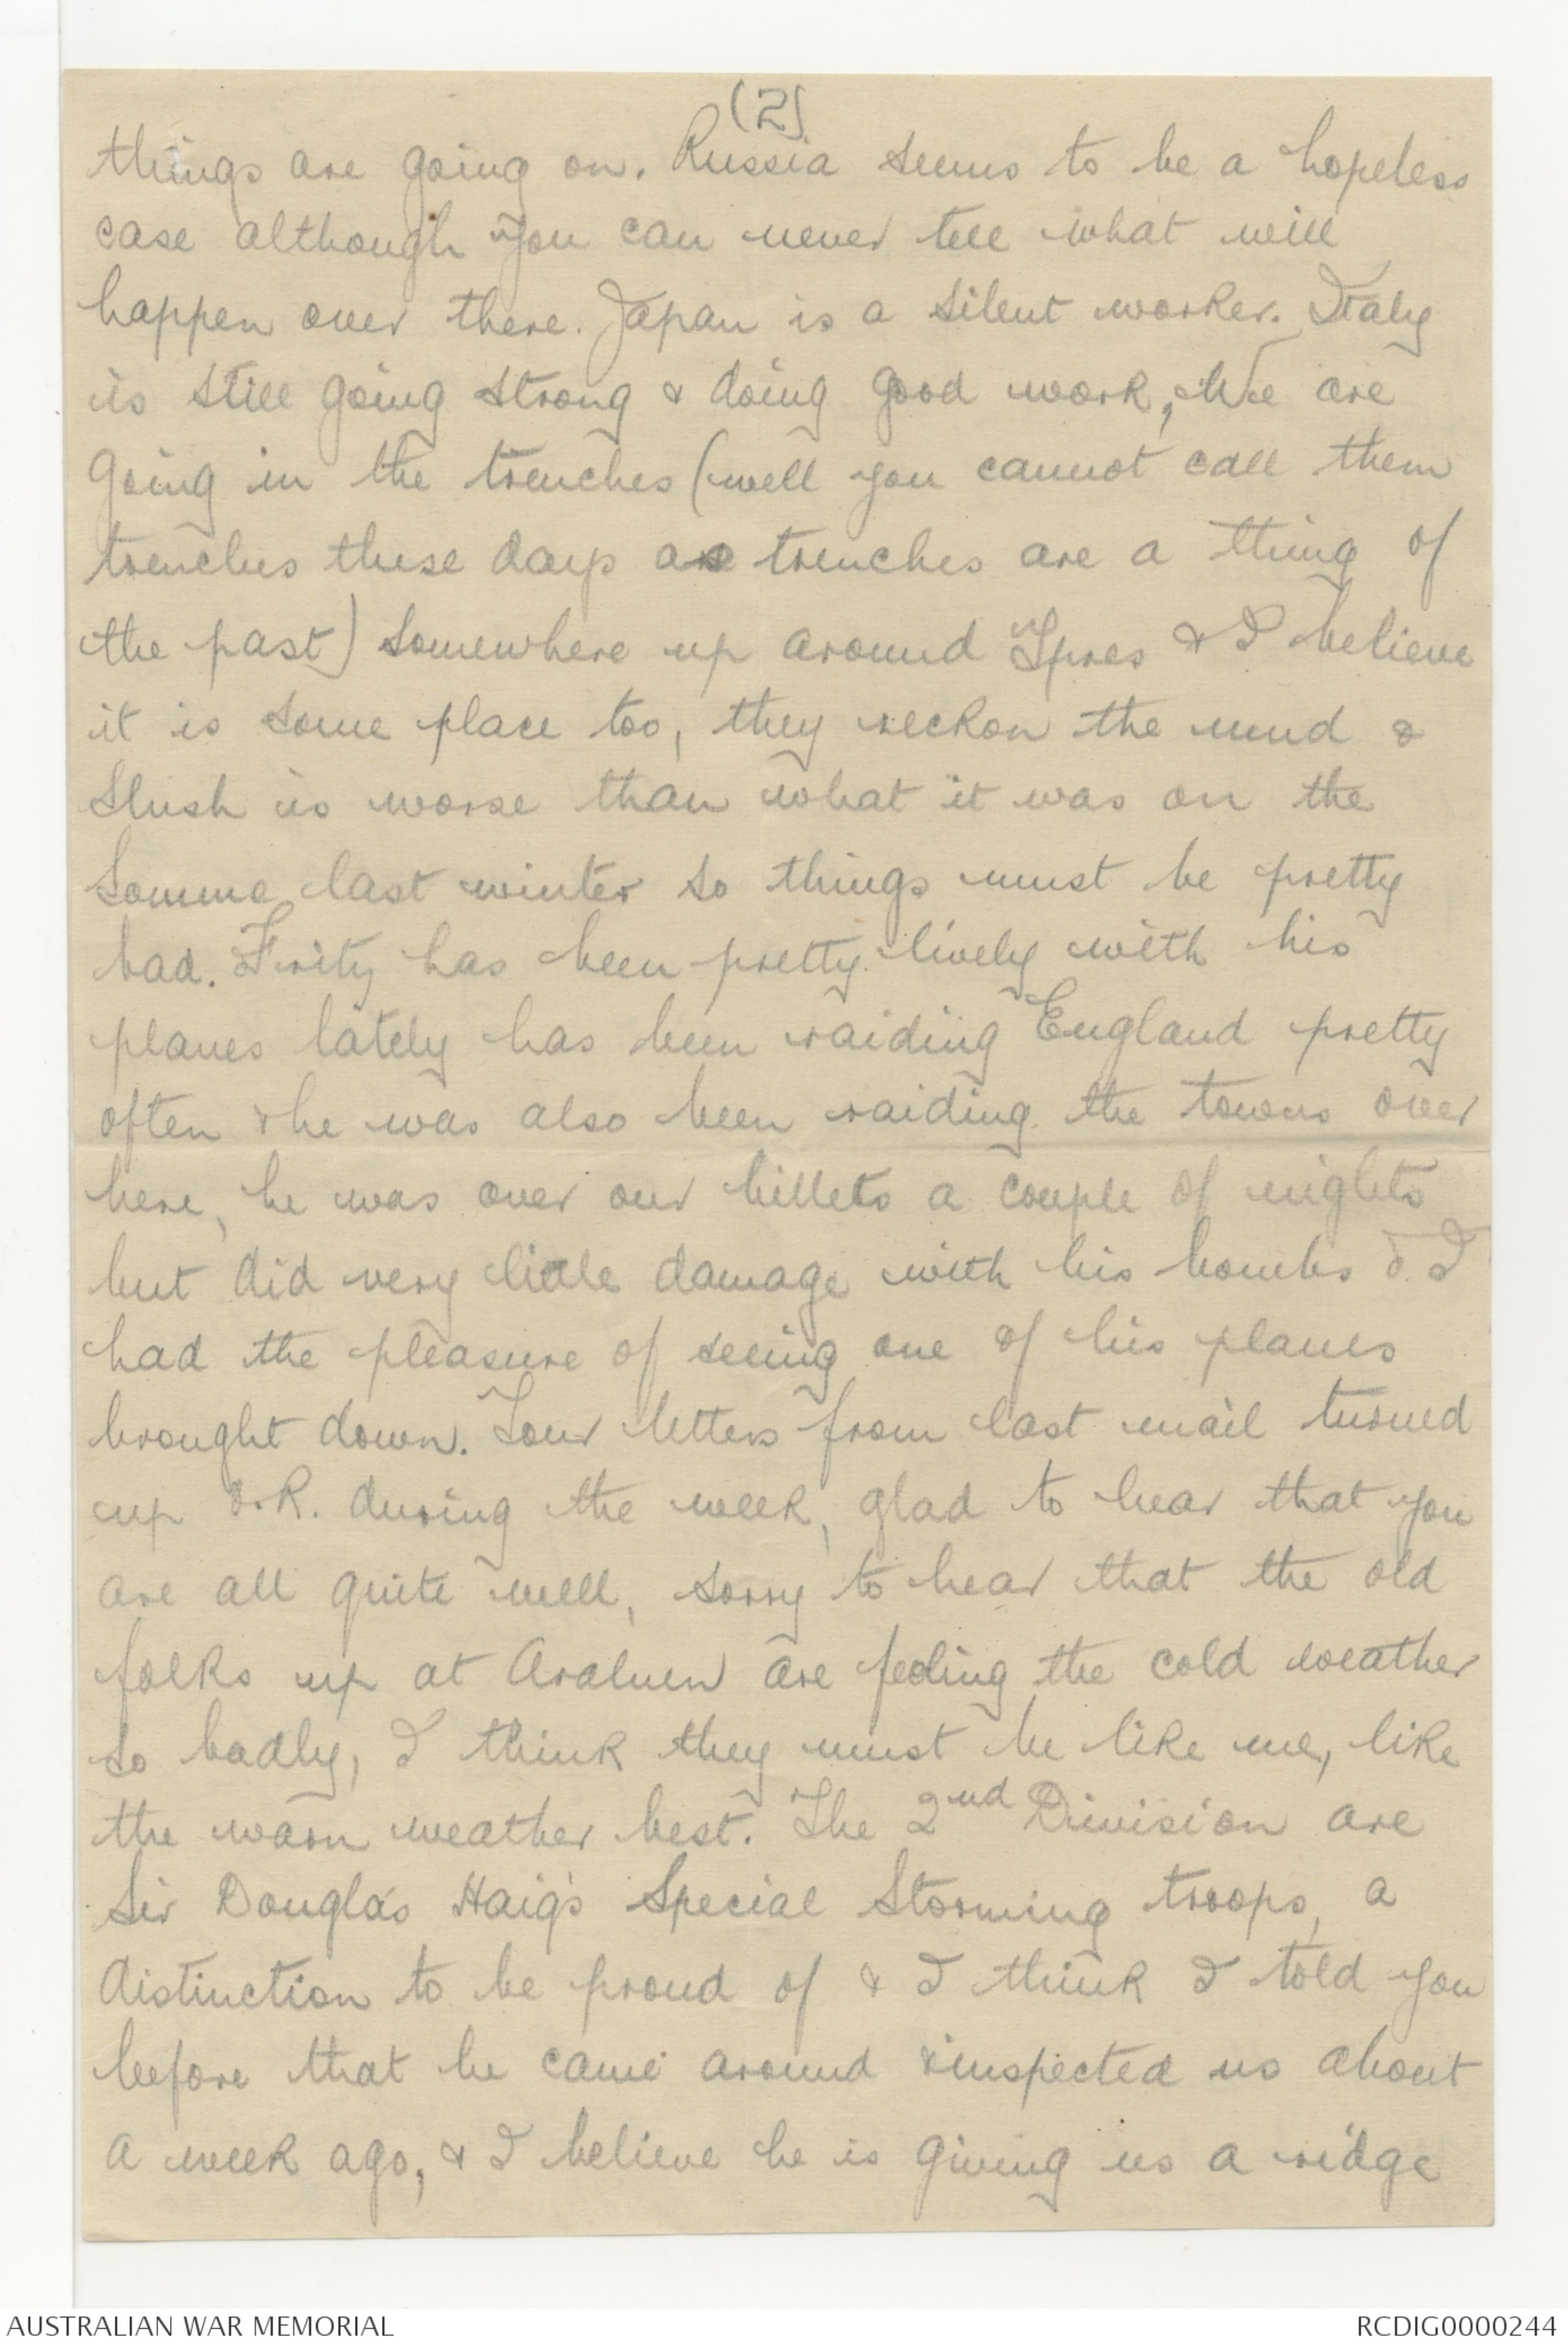 (2)
things are going on. Russia seems to be a hopeless
case although you can never tell what will
happen over there. Japan is a silent worker. Italy
is still going strong & doing good work, We are
going in the trenches (well you cannot call them
trenches these days as trenches are a thing of
the past) somewhere up around Ypres & I believe
it is some place too, they reckon the mud &
slush is worse than what it was on the
Somme last winter so things must be pretty
bad. Fritz has been pretty lively with his
planes lately has been raiding England pretty
often & he was also been raiding the towns over
here, he was over our billets a couple of nights
but did very little damage with his bombs & I
had the pleasure of seeing one of his planes
brought down. Your letters from last mail turned
up O.K. during the week, glad to hear that you
are all quite well, sorry to hear that the old
folks up at Araluen are feeling the cold weather
so badly, I think they must be like me, like
the warm weather best. The 2nd Division are
Sir Douglas Haig's Special Storming troops, a
distinction to be proud of & I think I told you
before that he came around & inspected us about
a week ago, & I believe he is giving us a ridge
AUSTRALIAN WAR MEMORIAL
RCDIG0000244